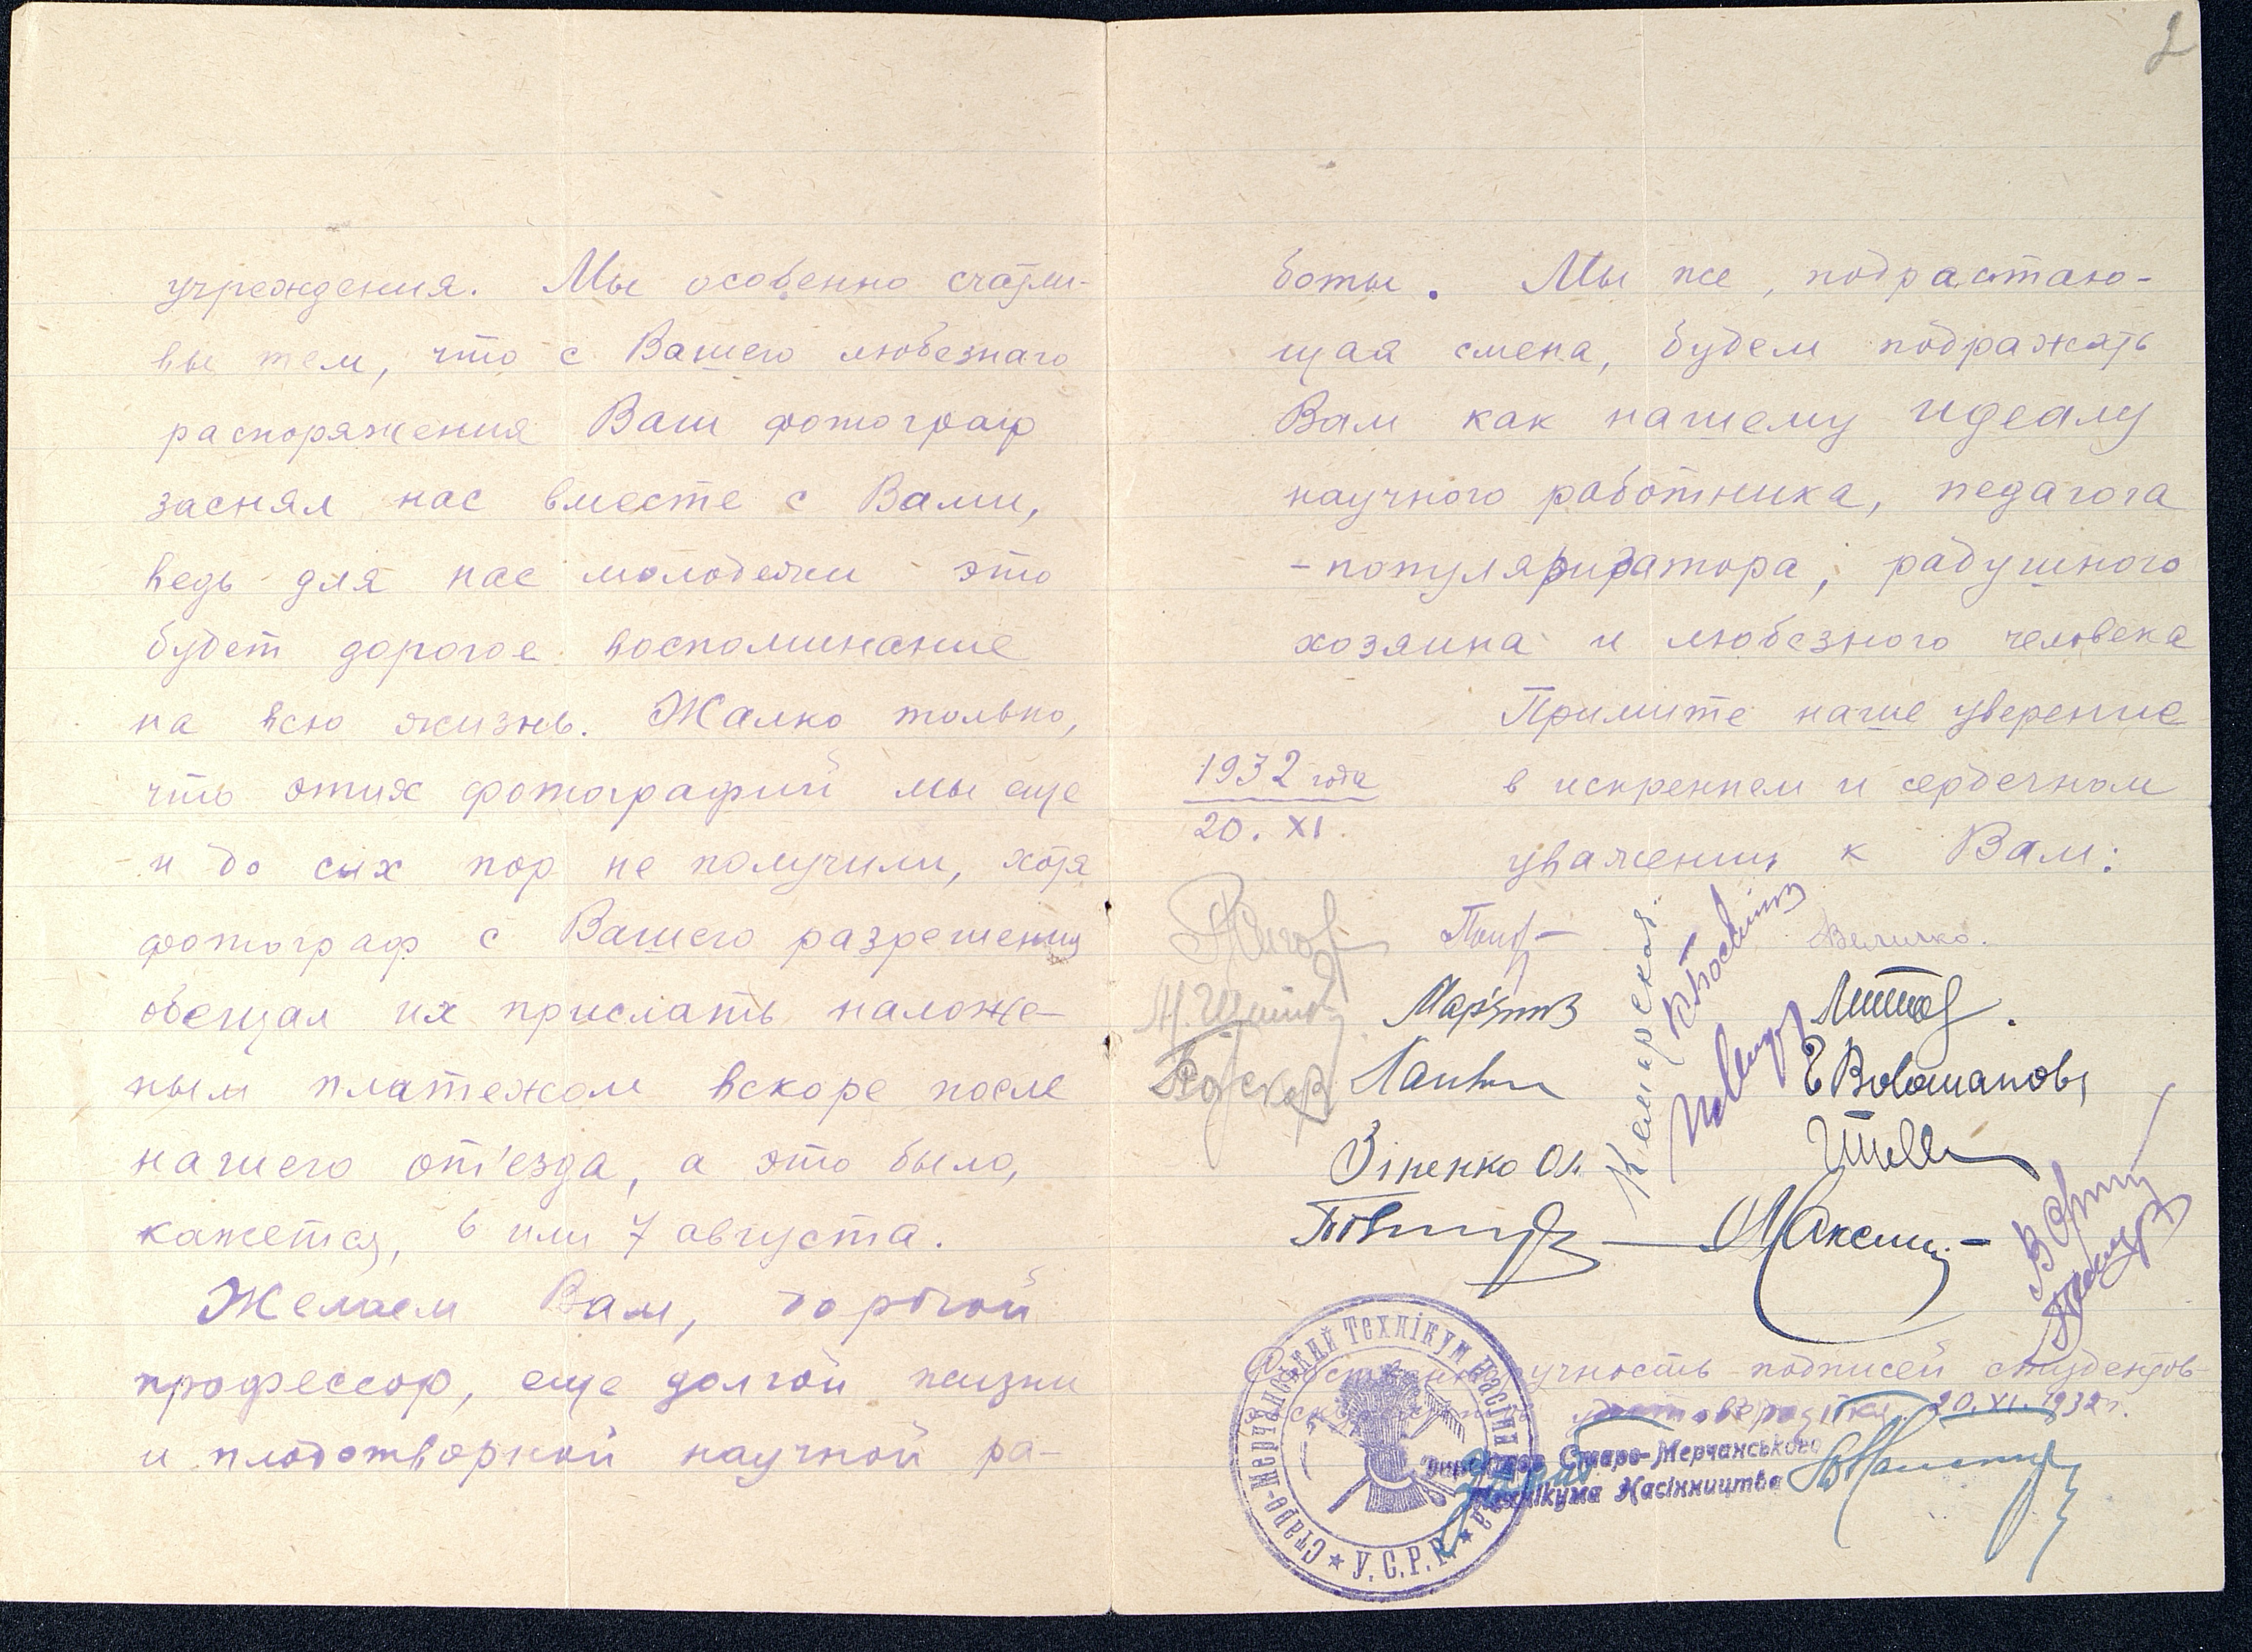 2
учреждения. Мы особенно счастли-
вы тем, что с Вашего любезнаго
распоряжения Ваш фотограф
заснял нас вместе с Вами,
ведь для нас молодежи это
будет дорогое воспоминание
на всю жизнь. Жалко только,
что этих фотографий мы еще
и до сих пор не получили, хотя
фотограф с Вашего разрешения
обещал их прислать наложе-
ным платежом вскоре после
нашего от'езда, а это было,
кажется, 6 или 7 августа.
Желаем Вам, дорогой
профессор, еще долгой жизни
и плодотворной научной ра-
боты. Мы же, подрастаю-
щая смена, будем подражать
Вам как нашему идеалу
научного работника, педагога
-популяризатора, радушного
хозяина и любезного человека
Примите наше уверение
в искреннем и сердечном
уважении к Вам:
1932 года
20. XI.
Величко.
Кемарская.
Зіненко Ол.
подписей студентов
20.XI.1932 г.
Директор Старо-Мерчанського
Технікума Насінництва
Старо-Мерчанський Технікум Насінництва
У.С.Р.Р.